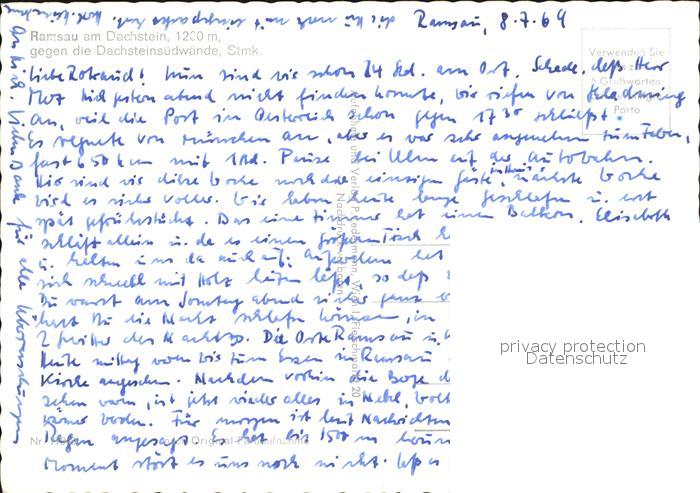 Ramsau, 8.7.69
Ramsau am Dachstein, 1200 m,
gegen die Dachsteinsüdwände, Stmk.
Verwenden Sie
5 Grußworten
Porto
Liebe Rotraud! Nun sind wir schon 24 Std. am Ort. Schade, daß Herr
Motz Dich gestern abend nicht finden konnte, wir riefen von Schladming
an, weil die Post in Österreich schon gegen 17 30 schließt.
Es regnete von München an, aber es war sehr angenehm zum Fahren,
fast 650 km mit 1 Std. Pause bei Ulm auf der Autobahn.
Hier sind wir diese Woche noch die einzigen Gäste, nächste Woche
wird es sicher voller. Wir haben heute lange geschlafen u. erst
spät gefrühstückt. Das eine Zimmer hat einen Balkon, Elisabeth
schläft allein u. da es einen großen Tisch h
u. halten uns da auch auf. Außerdem hat
sich schnell mit Holz heizen läßt, so daß
Du warst am Sonntag abend sicher ganz
hast Du die Nacht schlafen können, in
2 Drittel des Nachts. Die Orte Ramsau u.
Heute mittag waren wir zum Essen in Ramsau
Kirche angesehen. Nachdem vorhin die Berge
sehen waren, ist jetzt wieder alles in Nebel,
Für morgen ist laut Nachrichten
Regen angesagt. Es hat bis 1500 m
Moment stört es uns noch nicht.
An Dich. Vielen Dank für alle Überraschungen
privacy protection
Datenschutz